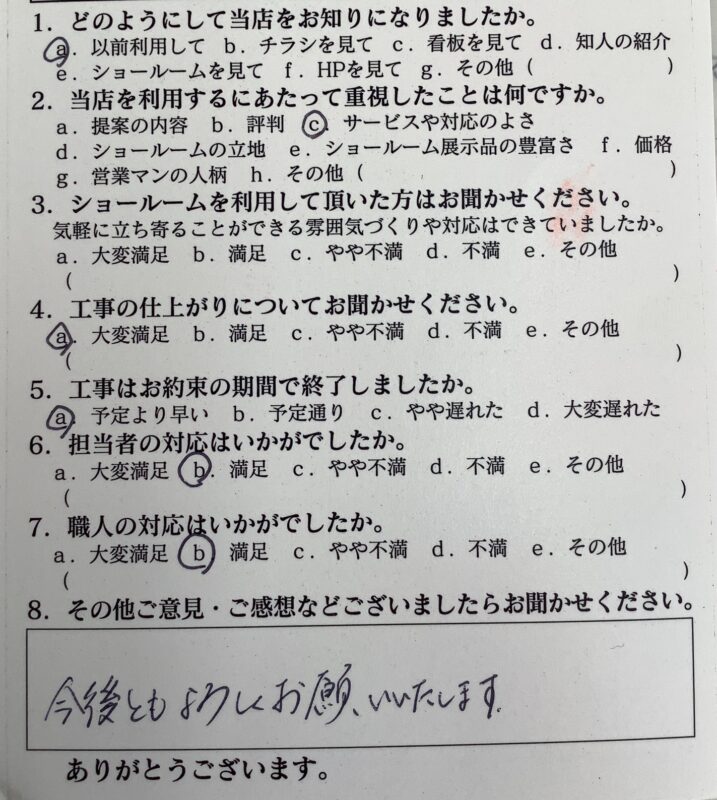 1. どのようにして当店をお知りになりましたか。
a. 以前利用して b. チラシを見て c. 看板を見て d. 知人の紹介
e. ショールームを見て f. HPを見て g. その他 ( )
2. 当店を利用するにあたって重視したことは何ですか。
a. 提案の内容 b. 評判 c. サービスや対応のよさ
d. ショールームの立地 e. ショールーム展示品の豊富さ f. 価格
g. 営業マンの人柄 h. その他 ( )
3. ショールームを利用して頂いた方はお聞かせください。
気軽に立ち寄ることができる雰囲気づくりや対応はできていましたか。
a. 大変満足 b. 満足 c. やや不満 d. 不満 e. その他
( )
4. 工事の仕上がりについてお聞かせください。
a. 大変満足 b. 満足 c. やや不満 d. 不満 e. その他
( )
5. 工事はお約束の期間で終了しましたか。
a. 予定より早い b. 予定通り c. やや遅れた d. 大変遅れた
6. 担当者の対応はいかがでしたか。
a. 大変満足 b. 満足 c. やや不満 d. 不満 e. その他
( )
7. 職人の対応はいかがでしたか。
a. 大変満足 b. 満足 c. やや不満 d. 不満 e. その他
( )
8. その他ご意見・ご感想などございましたらお聞かせください。
今後ともよろしくお願いいたします。
ありがとうございます。